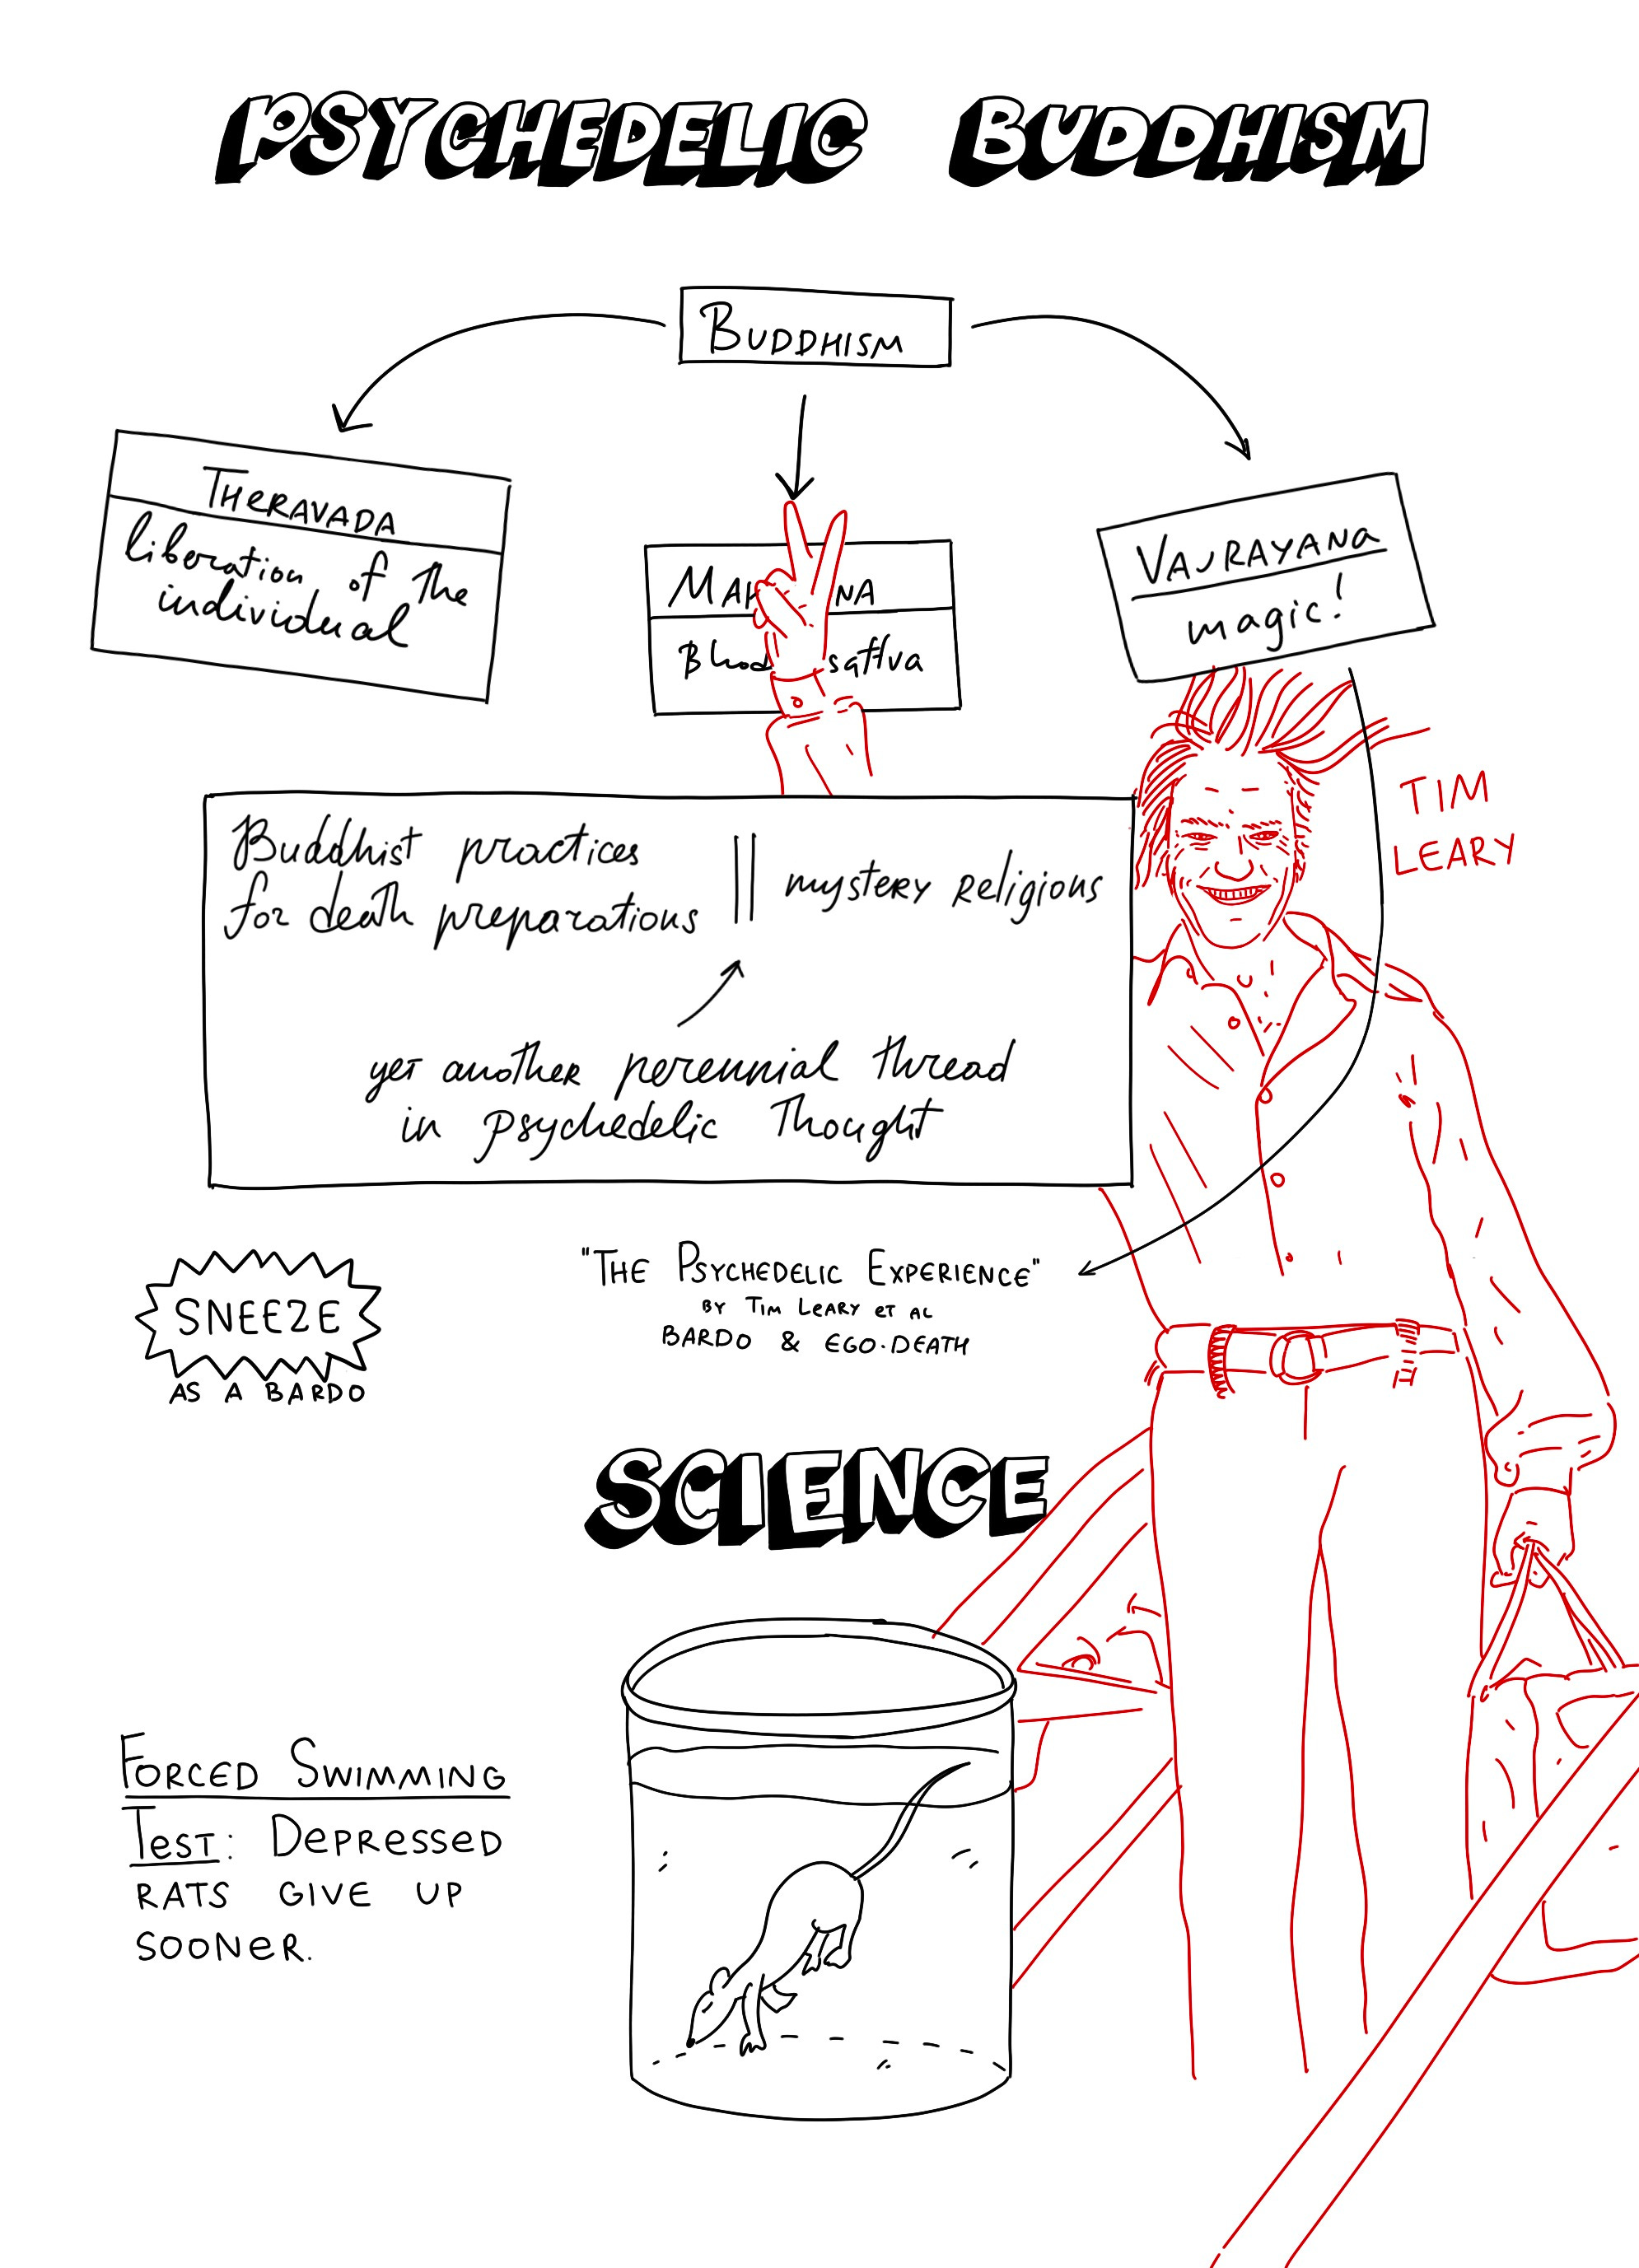 PSYCHEDELIC BUDDHISM
BUDDHISM
THERAVADA
liberation of the
individual
VAJRAYANA
magic!
TIM
LEARY
Buddhist practices
for death preparations
mystery religions
yet another perennial thread
in psychedelic thought
SNEEZE
AS A BARDO
"THE PSYCHEDELIC EXPERIENCE"
BY TIM LEARY ET AL
BARDO & EGO·DEATH
SCIENCE
FORCED SWIMMING
TEST: DEPRESSED
RATS GIVE UP
SOONER.